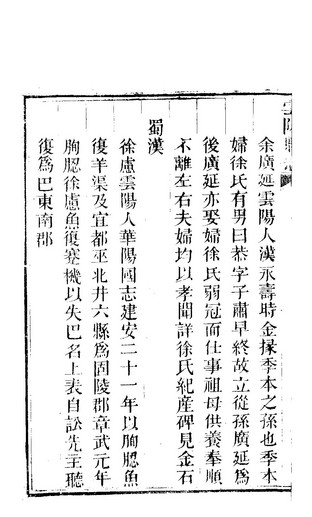 余廣延雲陽人漢永壽時金掾季本之孫也季本
婦徐氏有男曰恭字子肅早終故立從孫廣延爲
後廣延亦娶婦徐氏弱冠而仕事祖母供養奉順
不離左右夫婦均以孝聞詳徐氏紀産碑見金石
蜀漢
徐慮雲陽人華陽國志建安二十一年以朐䏰魚
復羊渠及宜都巫北井六縣爲固陵郡章武元年
朐䏰徐慮魚復蹇機以失巴名上表自訟先主聽
復爲巴東南郡